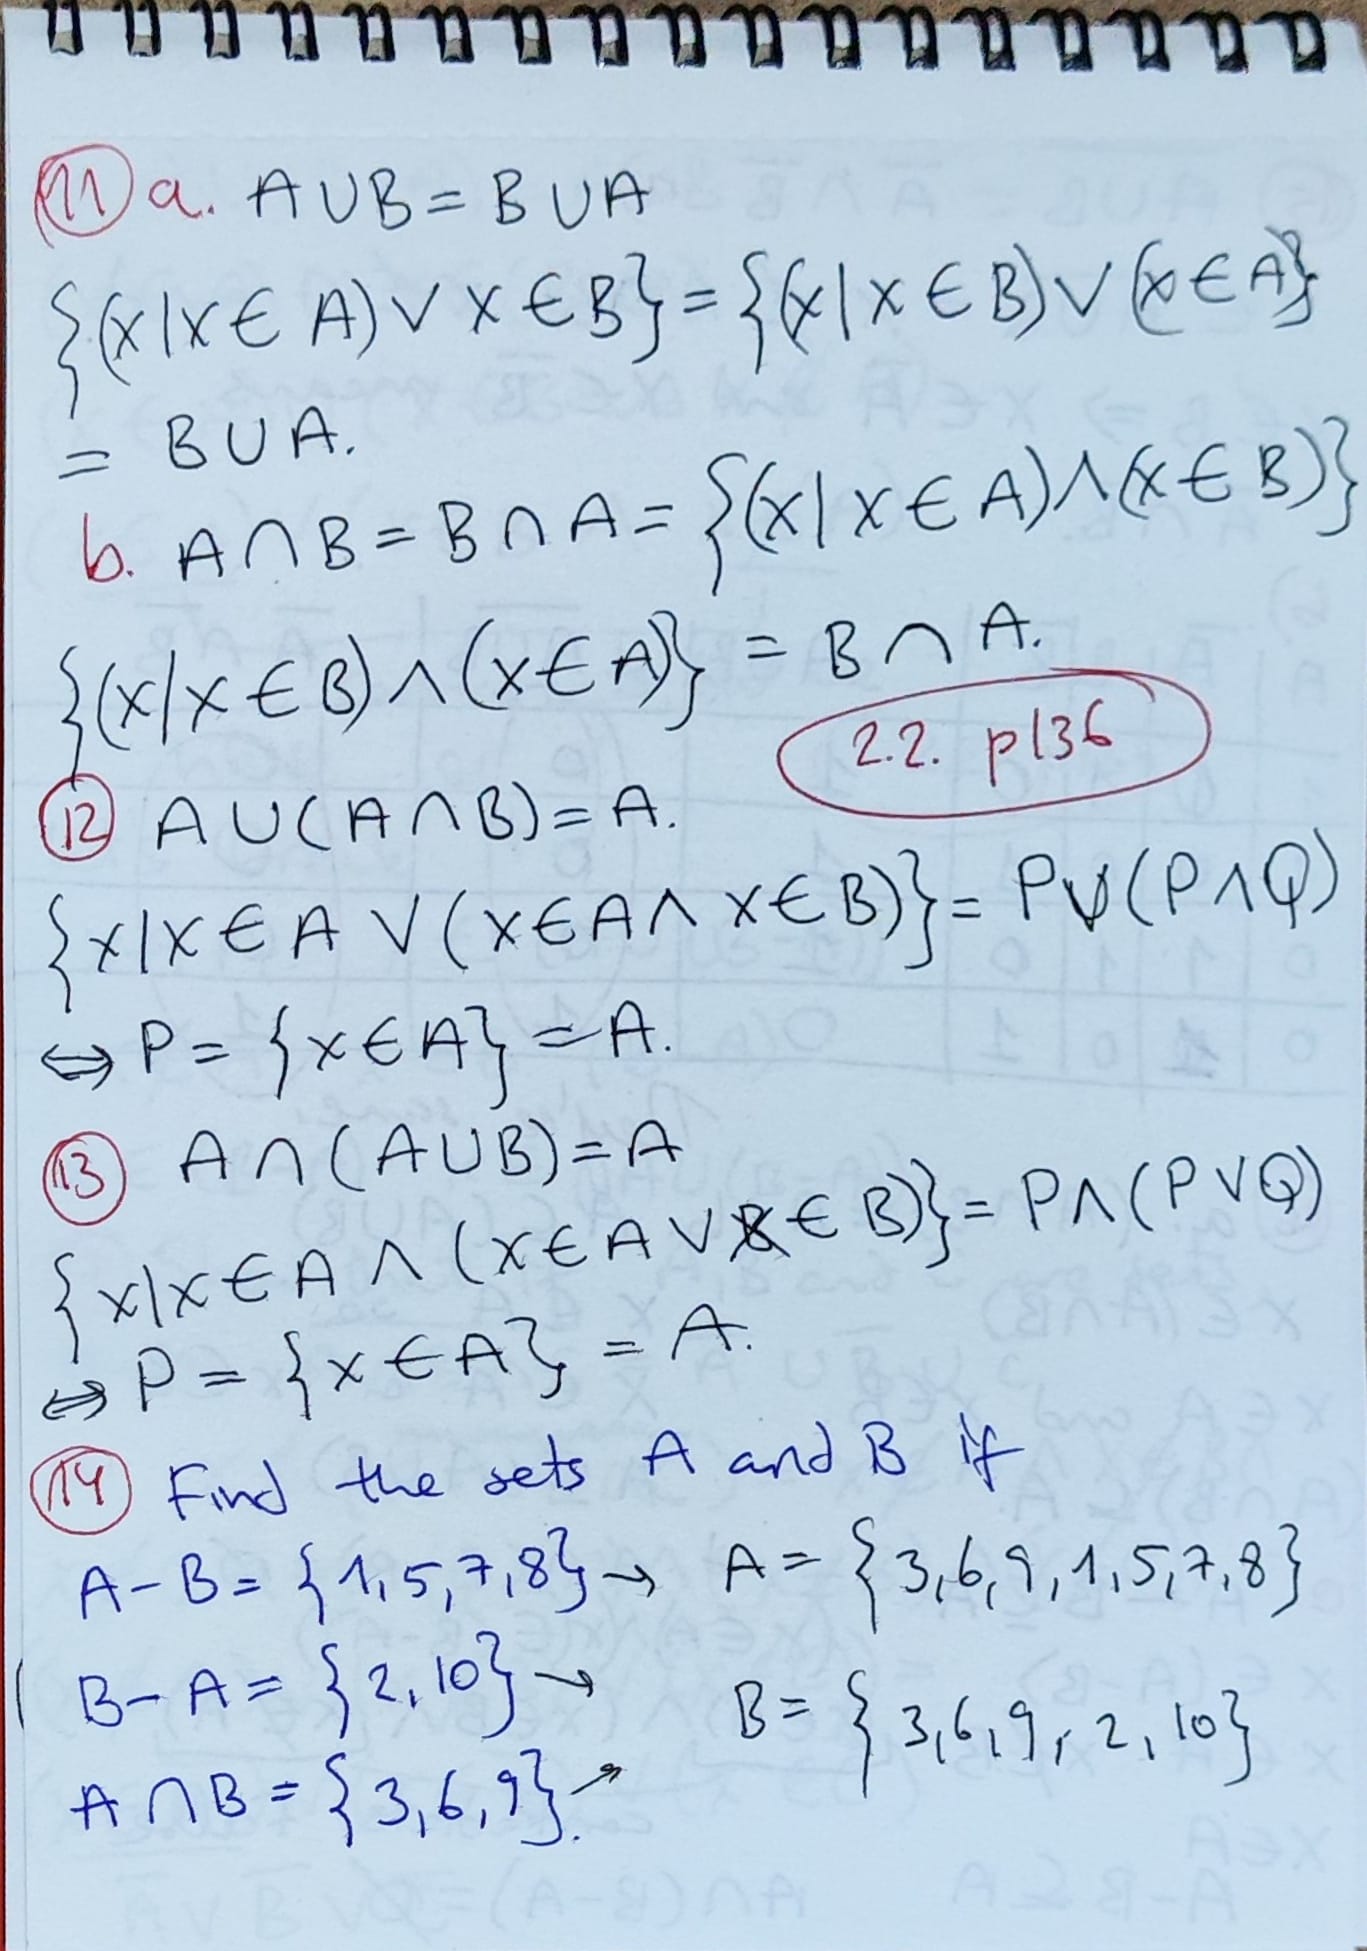 11 a. A∪B = B∪A
{(x|x∈A)∨x∈B} = {(x|x∈B)∨(x∈A}
= B∪A.
b. A∩B = B∩A = {(x|x∈A)∧(x∈B)}
{(x|x∈B)∧(x∈A)} = B∩A.
2.2. p136
12 A∪(A∩B)=A.
{x|x∈A∨(x∈A∧x∈B)} = P∨(P∧Q)
⇔ P = {x∈A} = A.
13 A∩(A∪B)=A
{x|x∈A∧(x∈A∨x∈B)} = P∧(P∨Q)
⇔ P = {x∈A} = A.
14 Find the sets A and B if
A-B = {1,5,7,8} → A = {3,6,9,1,5,7,8}
B-A = {2,10} → B = {3,6,9,2,10}
A∩B = {3,6,9}. ↗